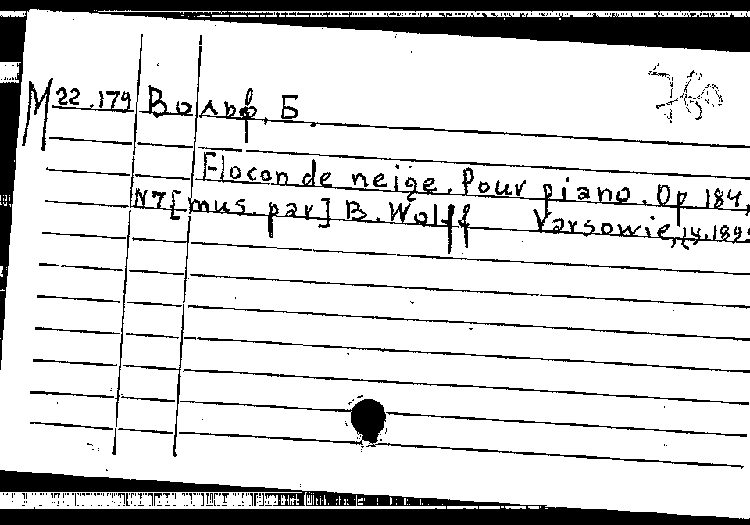 M 22.179 Вольф, Б.
Flocon de neige. Pour piano. Op 184,
N7 [mus. par] B. Wolff Varsowie,